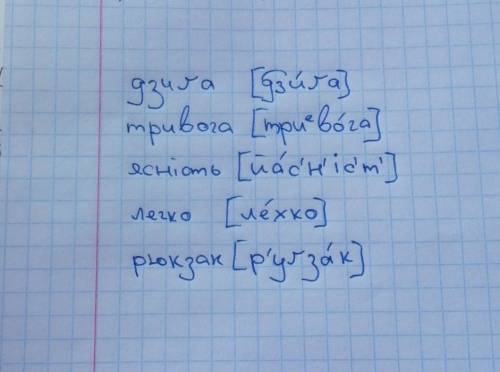 дзиґа [д͡зи́ґа]
тривога [триᵉво́га]
ясність [йа́с'н'іс'т']
легко [ле́хко]
рюкзак [р'уґза́к]